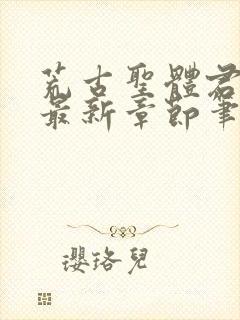 荒古聖體君
最新章節筆
瓔珞兒